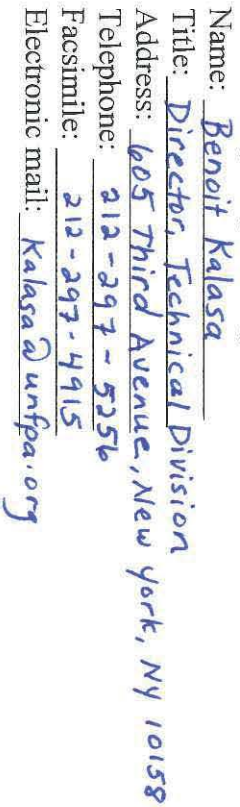 Name: Benoit Kalasa
Title: Director, Technical Division
Address: 605 Third Avenue, New York, NY 10158
Telephone: 212-297-5256
Facsimile: 212-297-4915
Electronic mail: Kalasa@unfpa.org